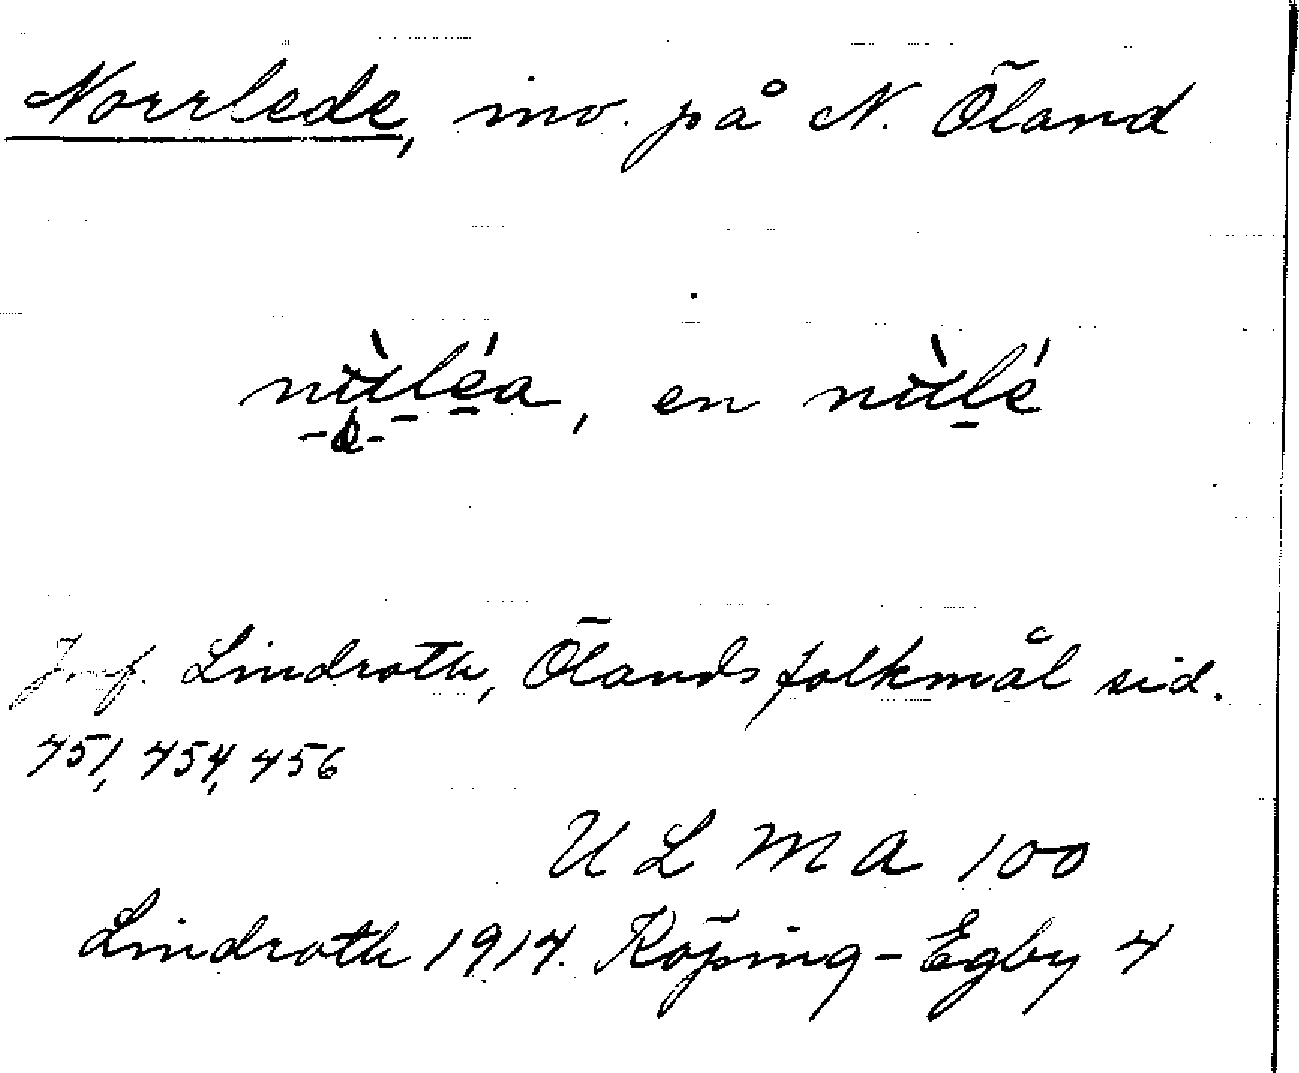 Norrlede, inv. på N. Öland
nùléa, en nùlé
Jmf. Lindroth, Ölands folkmål sid.
451, 454, 456
ULMA 100
Lindroth 1914. Köping-Egby 4